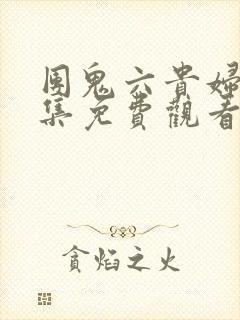 團鬼六貴婦
集免費觀看
貪焰之火